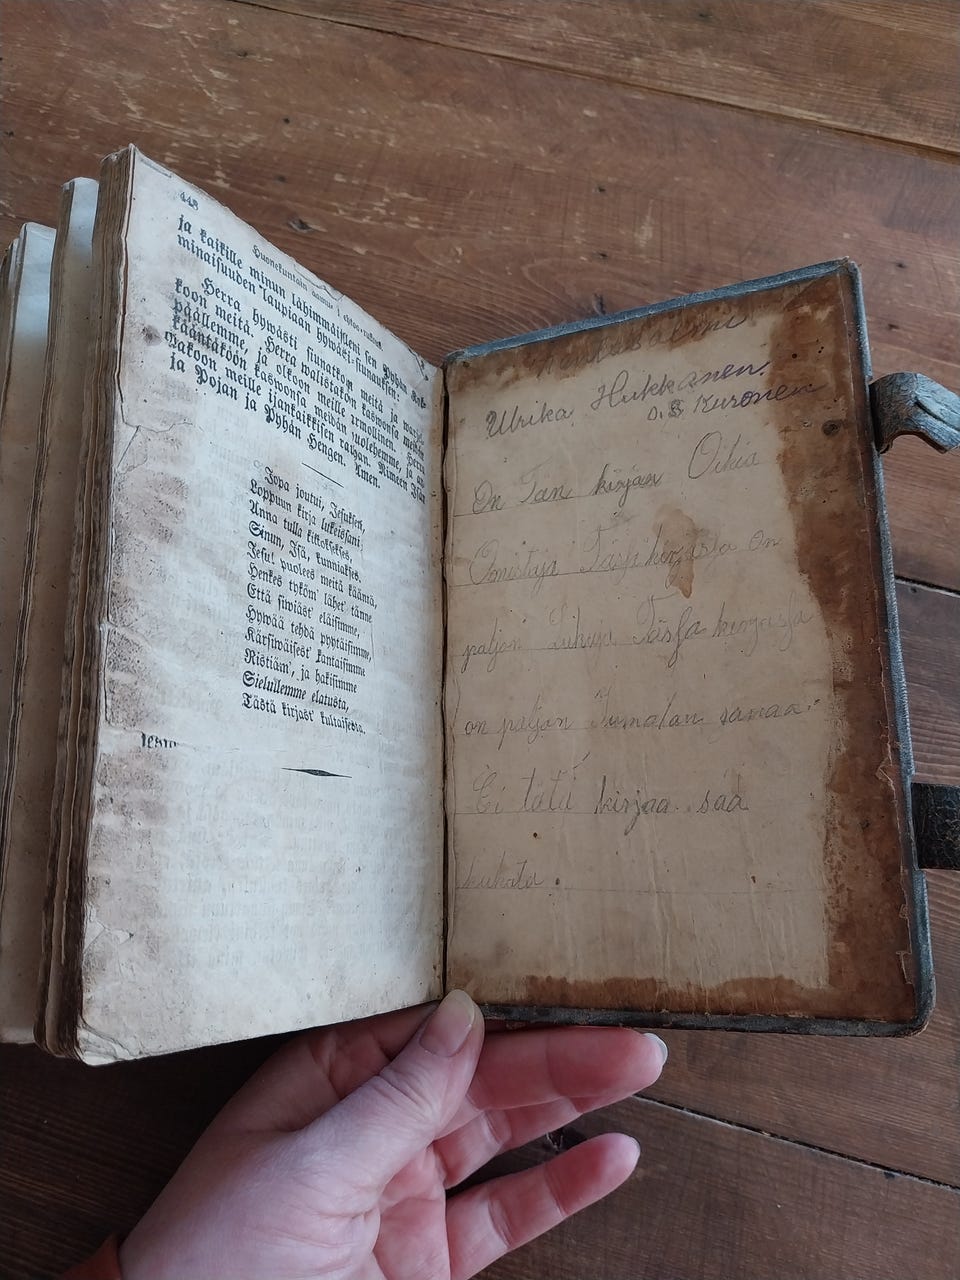 448
Huonekuntain aamu- ja ehtoo-rukous.
ja kaikille minun lähimmäisilleni sen Pyhän
minaisuuden Taupiaan hywästi-siunauksen:
Herra hywästi siunatkoon meitä ja
koon meitä. Herra walistakoon kaswonsa meidän
päällemme, ja olkoon meille armollinen. Herra
kääntäköön kaswonsa meidän puolehemme, ja an-
takoon meille ijankaikkisen rauhan. Nimeen Isän
ja Pojan ja Pyhän Hengen. Amen.
Jopa joutui, Jesuksen,
Loppuun kirja lukeissani;
Anna tulla kiitokseksi,
Sinun, Isä, kunniaksi.
Jesu! puolees meitä käännä,
Henkes tyköm' lähet' tänne
Että siwiäst' eläisimme,
Hywää tehdä pyytäisimme,
Kärsiwäisest' kantaisimme
Ristiäm', ja hakisimme
Sielullemme elatusta,
Tästä kirjast' kultaisesta.
Ulrika Hukkanen.
O.S. Kuronen
On Tan kirjan Oikia
Omistija Täsfä kirjasfa On
paljon Täsfä kirjasfa
on paljon Jumalan sanaa.
Ei tätä kirjaa saa
hukata.